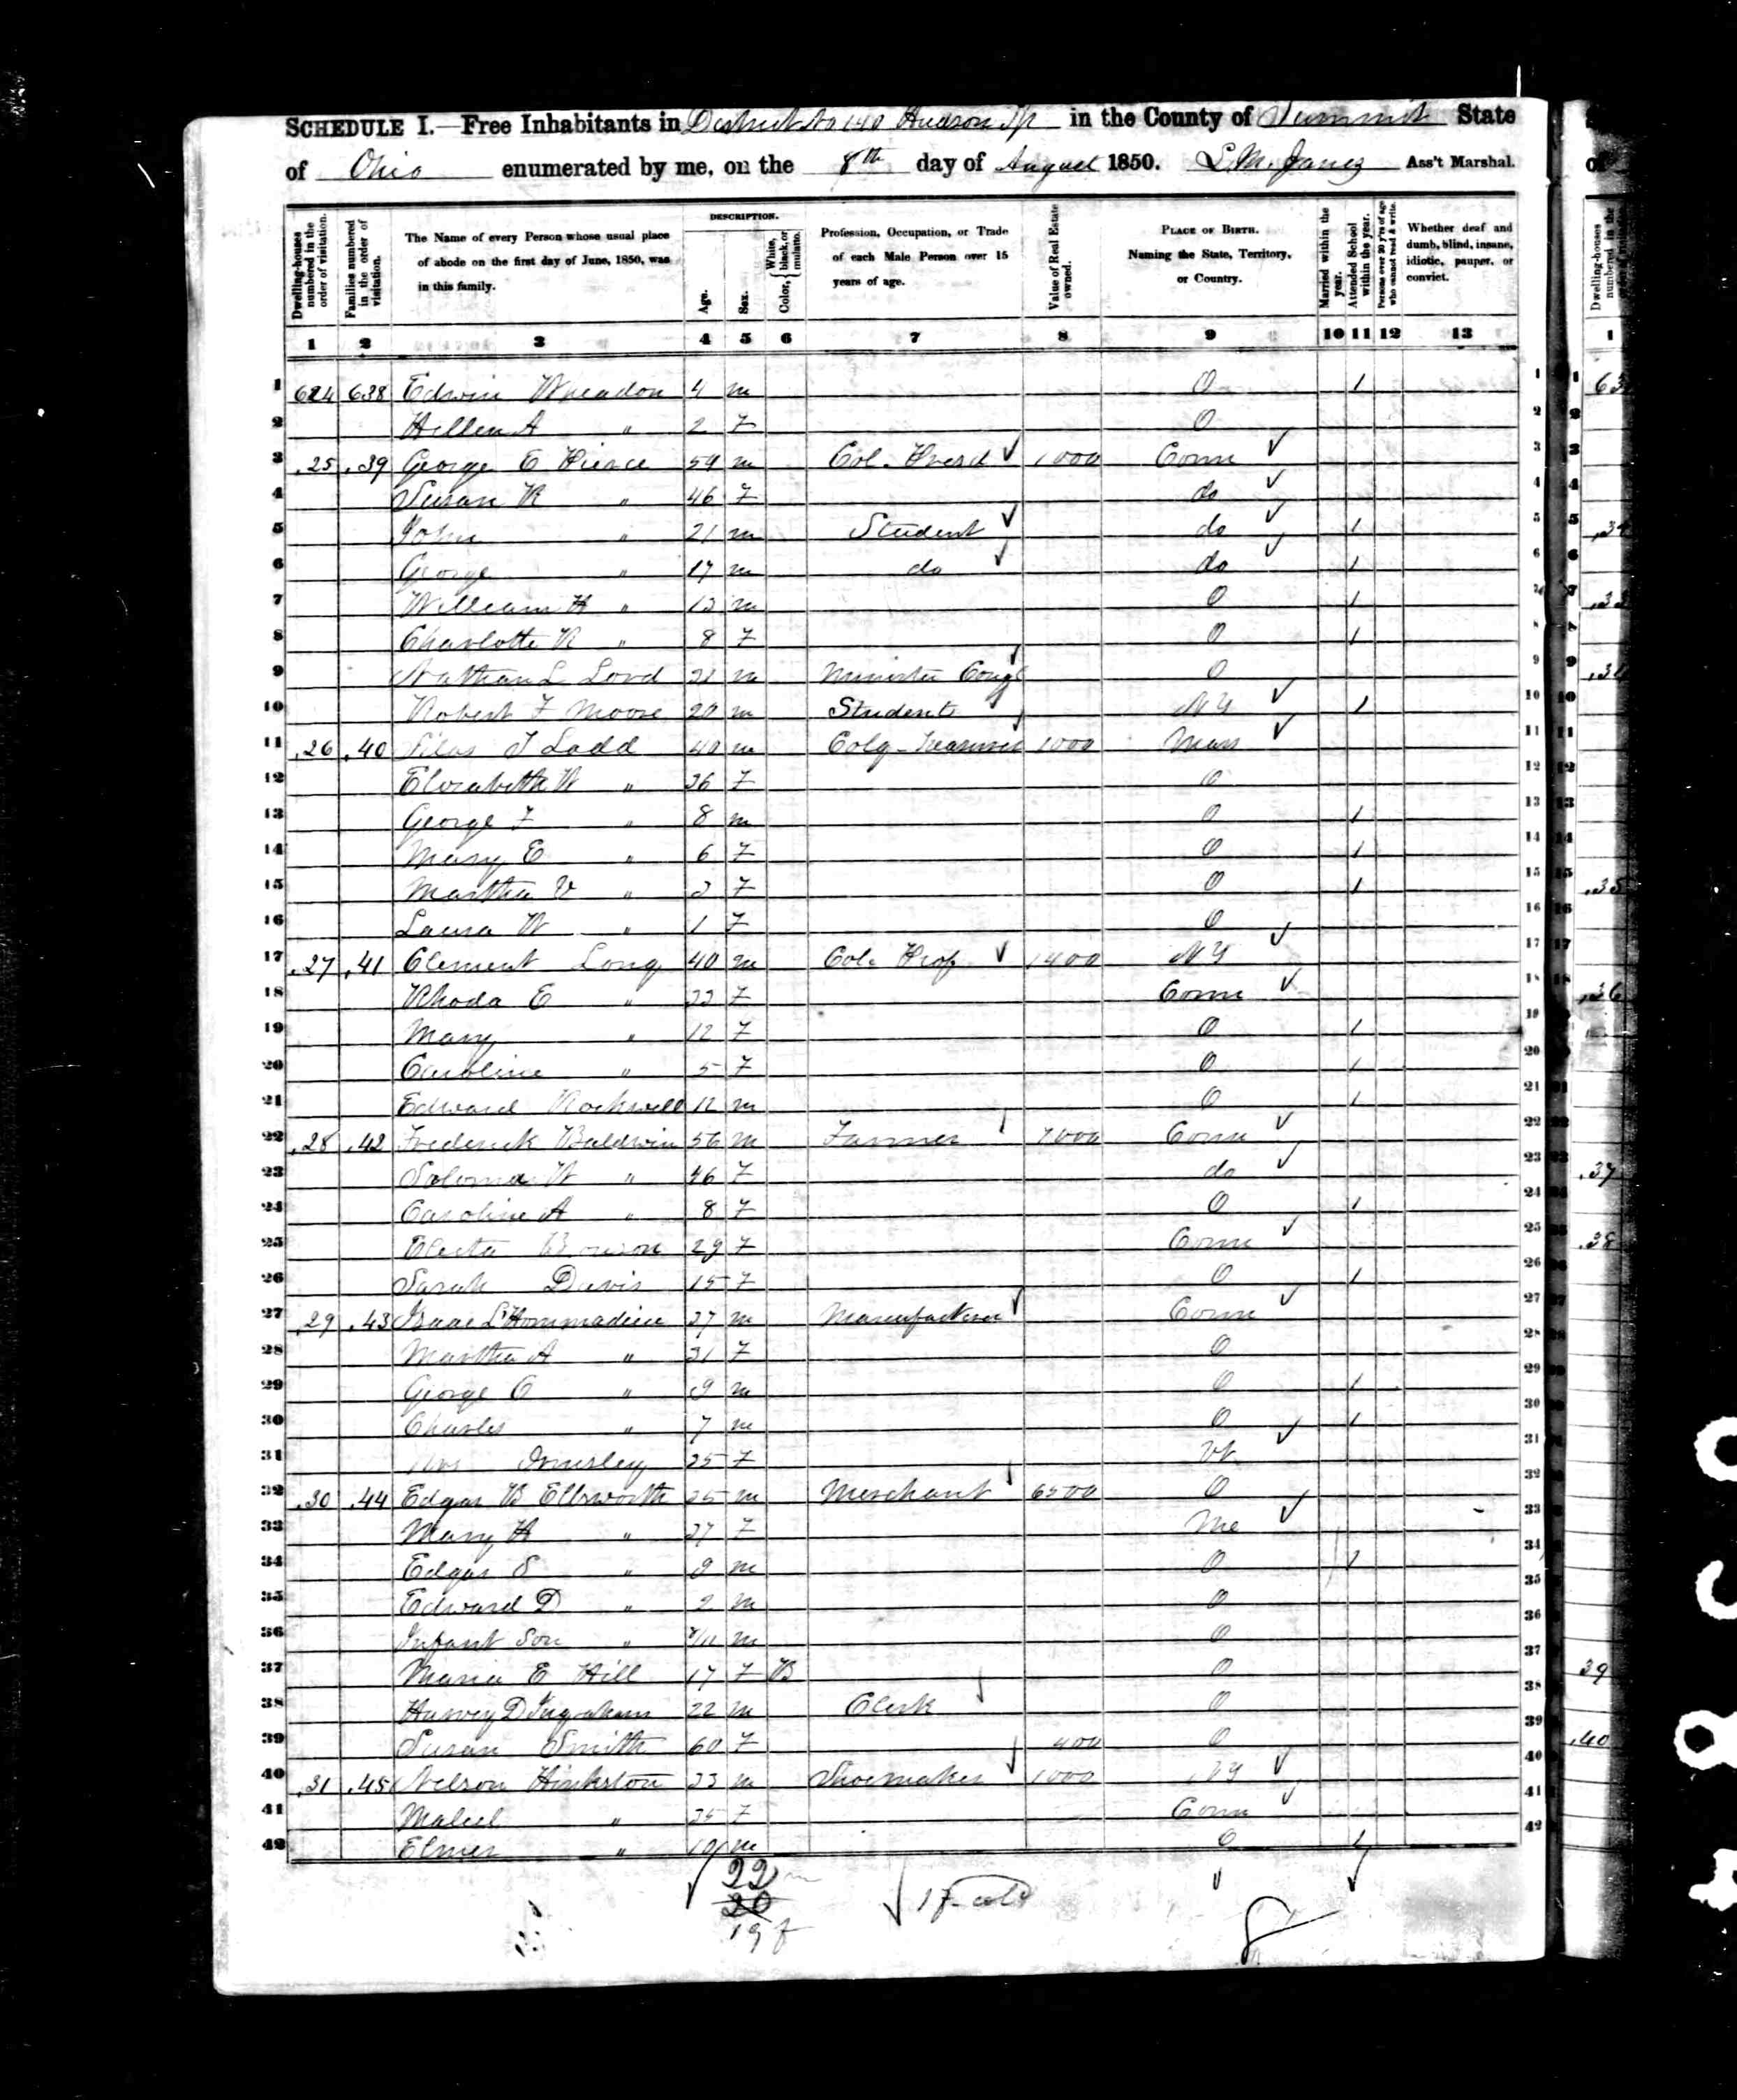 SCHEDULE I.—Free Inhabitants in District No 140 Hudson Tp in the County of Summit State
of Ohio enumerated by me, on the 8th day of August 1850. Ass't Marshal.
Dwelling-houses numbered in the order of visitation.
Families numbered in the order of visitation.
The Name of every Person whose usual place of abode on the first day of June, 1850, was in this family.
DESCRIPTION.
Age.
Sex.
Color, { White, black, or mulatto.
Profession, Occupation, or Trade of each Male Person over 15 years of age.
Value of Real Estate owned.
PLACE OF BIRTH. Naming the State, Territory, or Country.
Married within the year.
Attended School within the year.
Persons over 20 y'rs of age who cannot read & write.
Whether deaf and dumb, blind, insane, idiotic, pauper, or convict.
1 2 3 4 5 6 7 8 9 10 11 12 13
1 624 638 Edwin Wheadon 4 m O 1 1
2 Hellen A " 2 F O 2
3 ,25 ,39 George E Pierce 54 m Col. Presd 1000 Conn 3
4 Susan R " 46 F do 4
5 John " 21 m Student do 1 5
6 George " 17 m do do 1 6
7 William H " 13 m O 1 7
8 Charlotte R " 8 F O 1 8
9 Nathan L Lord 31 m Minister Cong O 9
10 Robert F Moore 20 m Student NY 1 10
11 ,26 ,40 Silas T Ladd 40 m Colg. Treasurer 1000 Mass 11
12 Elizabeth W " 36 F O 12
13 George F " 8 m O 1 13
14 Mary E " 6 F O 1 14
15 Martha V " 3 F O 1 15
16 Laura W " 1 F O 16
17 ,27 ,41 Clement Long 40 m Col. Prof 1400 NY 17
18 Rhoda E " 33 F Conn 18
19 Mary " 12 F O 1 19
20 Caroline " 5 F O 1 20
21 Edward Rockwell 12 m O 1 21
22 ,28 ,42 Frederick Baldwin 56 m Farmer 7000 Conn 22
23 Saloma W " 46 F do 23
24 Caroline A " 8 F O 1 24
25 Electa Bronson 29 F Conn 25
26 Sarah Davis 15 F O 1 26
27 ,29 ,43 Isaac L'Hommadieu 37 m Manufacturer Conn 27
28 Martha A " 31 F O 28
29 George C " 9 m O 1 29
30 Charles " 7 m O 1 30
31 25 F Vt 31
32 ,30 ,44 Edgar B Ellsworth 35 m Merchant 6500 O 32
33 Mary H " 37 F Me 33
34 Edgar S " 9 m O 1 34
35 Edward D " 2 m O 35
36 Infant Son " m O 36
37 Maria E Hill 17 F B O 37
38 Harvey D Ingraham 22 m Clerk O 38
39 Susan Smith 60 F 400 O 39
40 ,31 ,45 Nelson Hinkston 33 m Shoemaker 1000 NY 40
41 Mabel " 35 F Conn 41
42 Elmer " 10 m O 1 42
22 m
20
19 f
1 f. cold